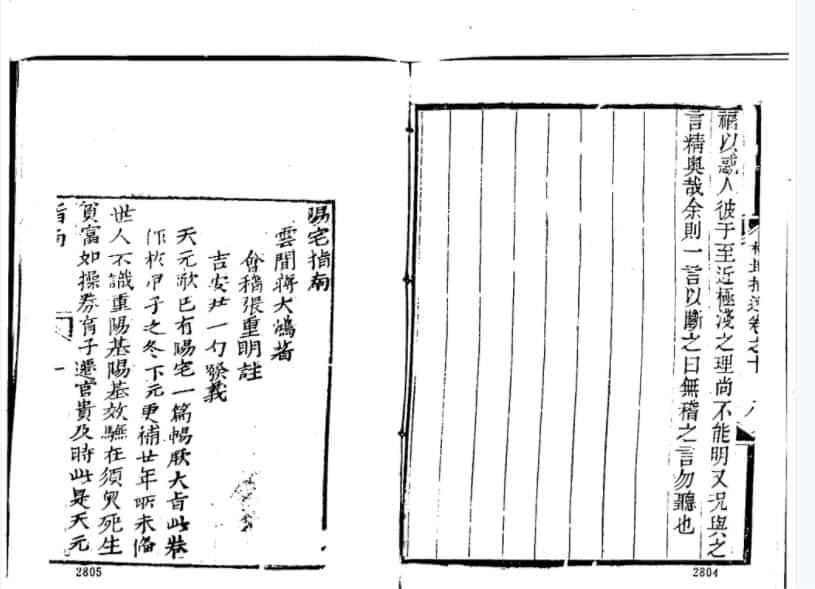 禍以惑人彼于至近極淺之理尚不能明又况與之
言精奧哉余則一言以斷之曰無稽之言勿聽也
卷之十
八
2804
陽宅指南
雲間蔣大鴻著
會稽張重明註
吉安 一勺發義
天元歌已有陽宅一篇暢厥大旨此卷
作於甲子之冬下元更補廿年所未備
世人不識重陽基陽基效驗在須臾死生
貧富如操券育子遷官貴及時此是天元
指南
一
2805